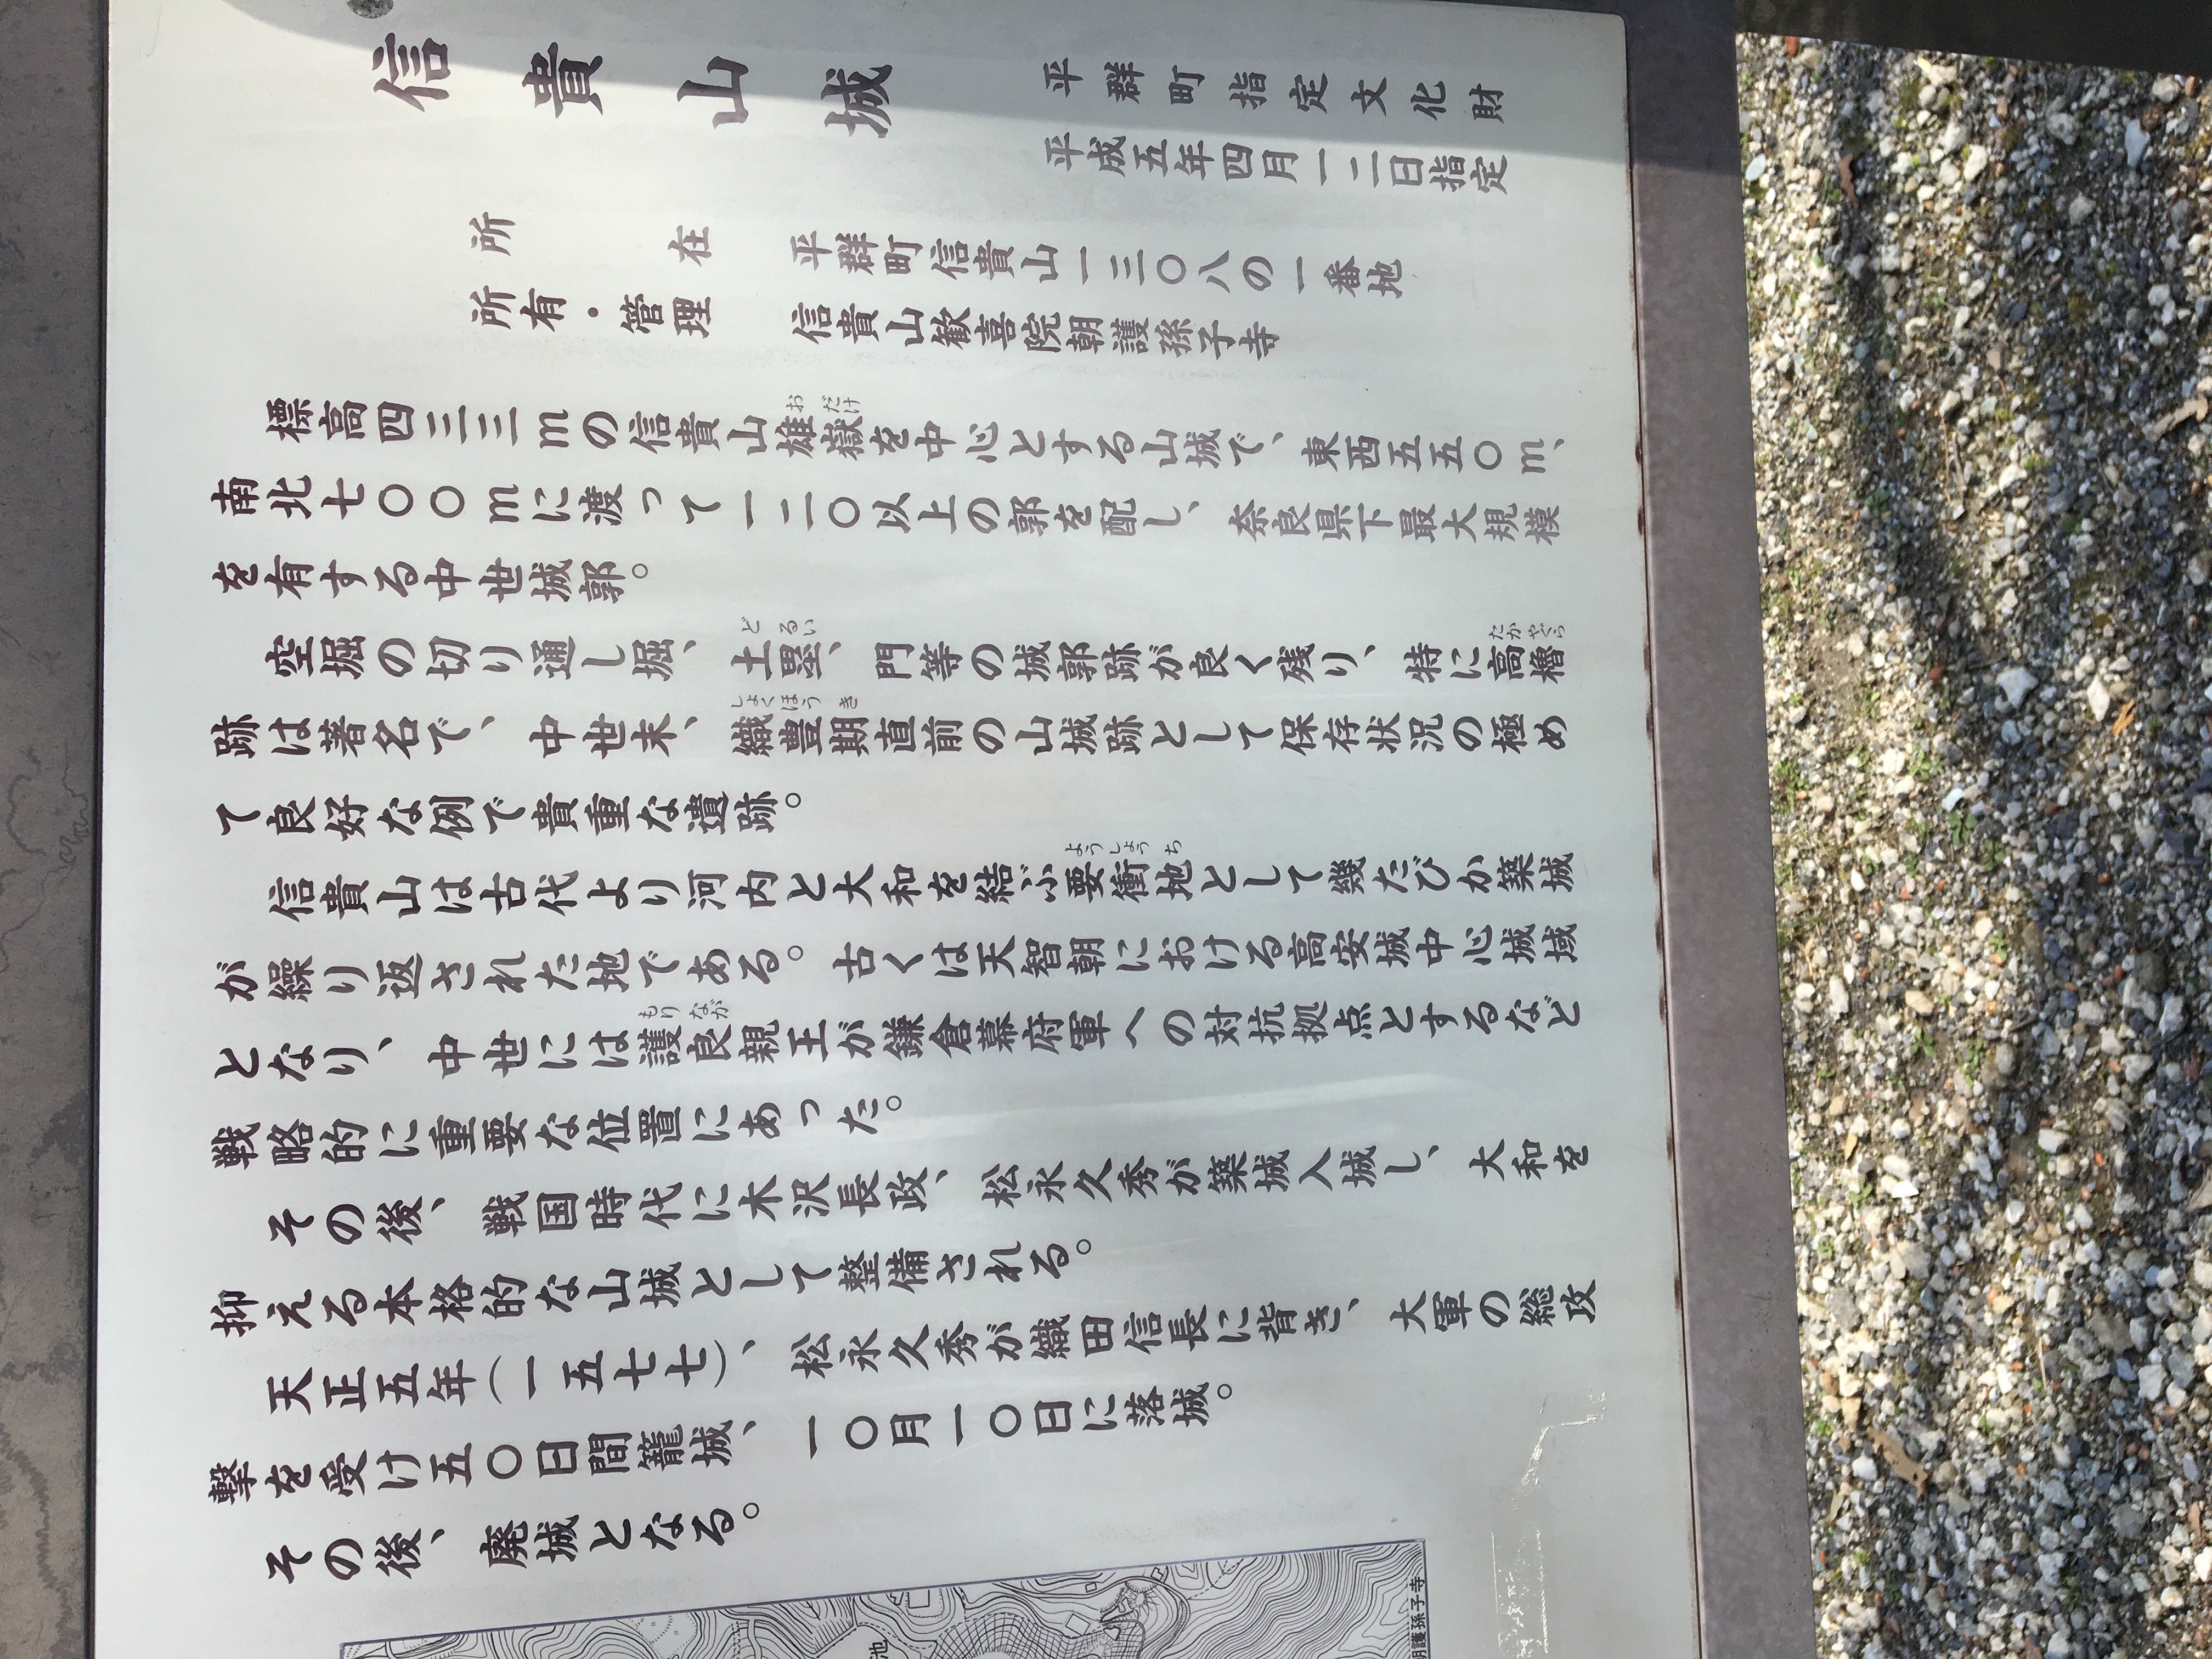 信貴山城
平群町指定文化財
平成五年四月一二日指定
所在 平群町信貴山一三〇八の一番地
所有・管理 信貴山歓喜院朝護孫子寺
標高四三三mの信貴山雄嶽を中心とする山城で、東西五五〇m、
おだけ
南北七〇〇mに渡って一二〇以上の郭を配し、奈良県下最大規模
を有する中世城郭。
空堀の切り通し堀、土塁、門等の城郭跡が良く残り、特に高櫓
どるい
たかやぐら
跡は著名で、中世末、織豊期直前の山城跡として保存状況の極め
しょくほうき
て良好な例で貴重な遺跡。
信貴山は古代より河内と大和を結ぶ要衝地として幾たびか築城
ようしょうち
が繰り返された地である。古くは天智朝における高安城中心城域
となり、中世には護良親王が鎌倉幕府軍への対抗拠点とするなど
もりなが
戦略的に重要な位置にあった。
その後、戦国時代に木沢長政、松永久秀が築城入城し、大和を
抑える本格的な山城として整備される。
天正五年(一五七七)、松永久秀が織田信長に背き、大軍の総攻
撃を受け五〇日間籠城、一〇月一〇日に落城。
その後、廃城となる。
朝護孫子寺
池